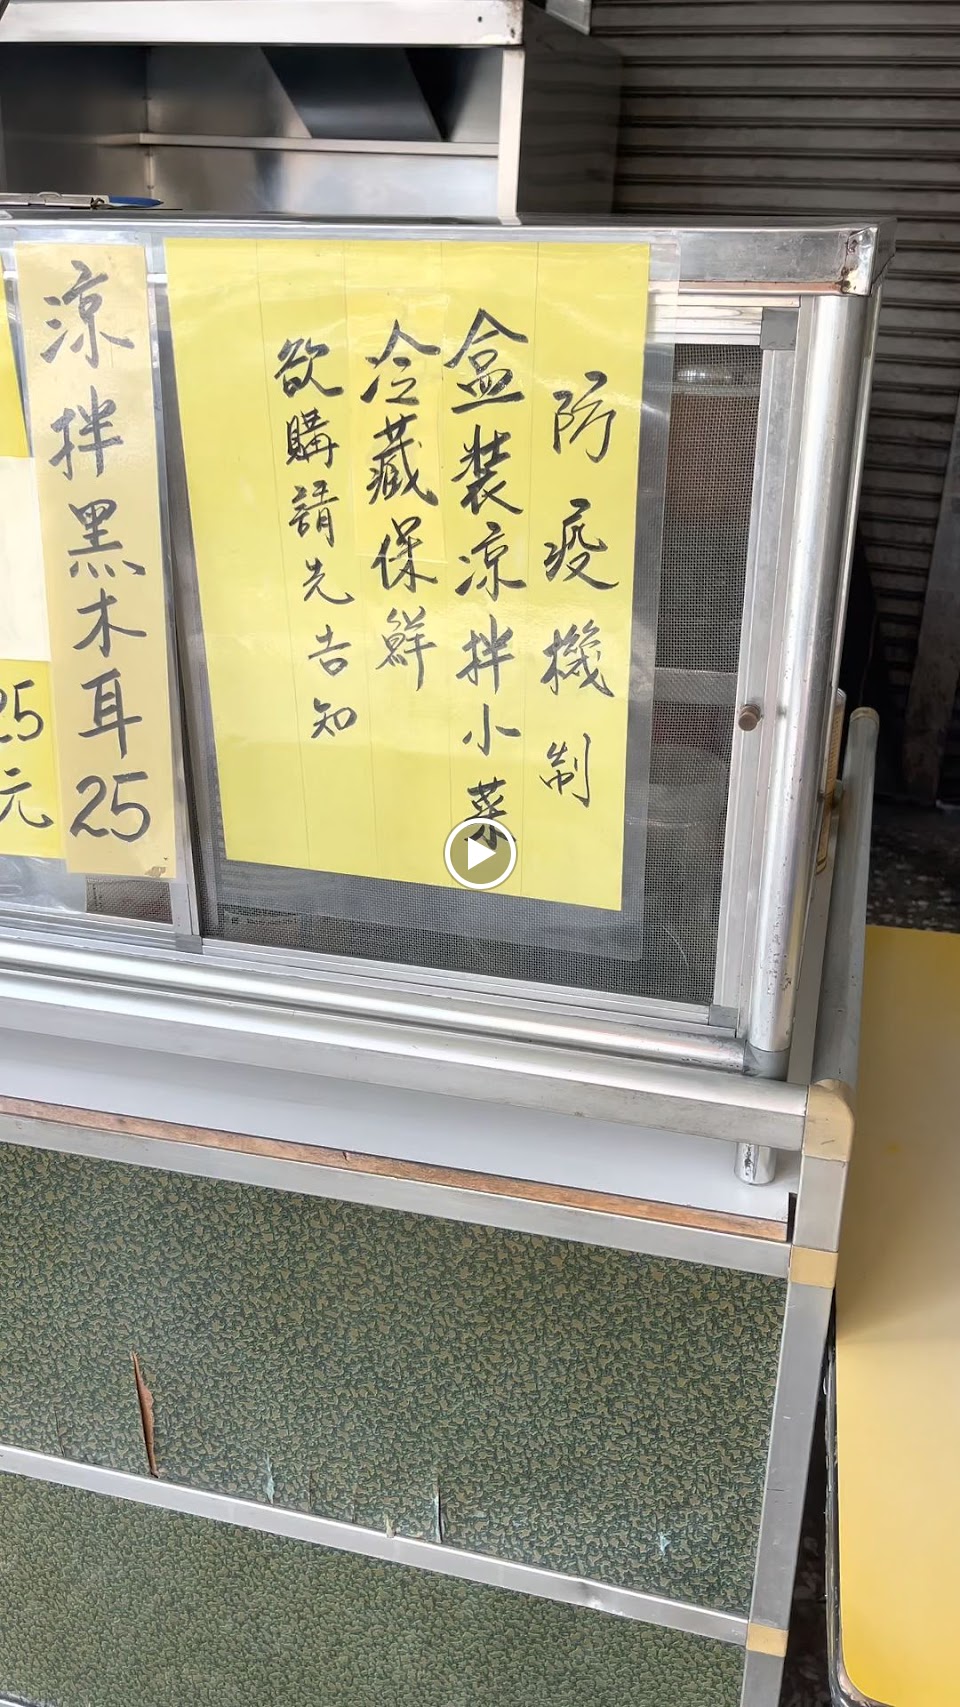 防疫機制
盒裝涼拌小菜
冷藏保鮮
欲購請先告知
涼拌黑木耳25
25元